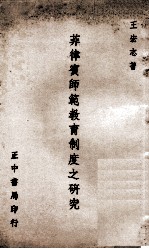 王安志著
菲律賓師範教育制度之研究
正中書局印行